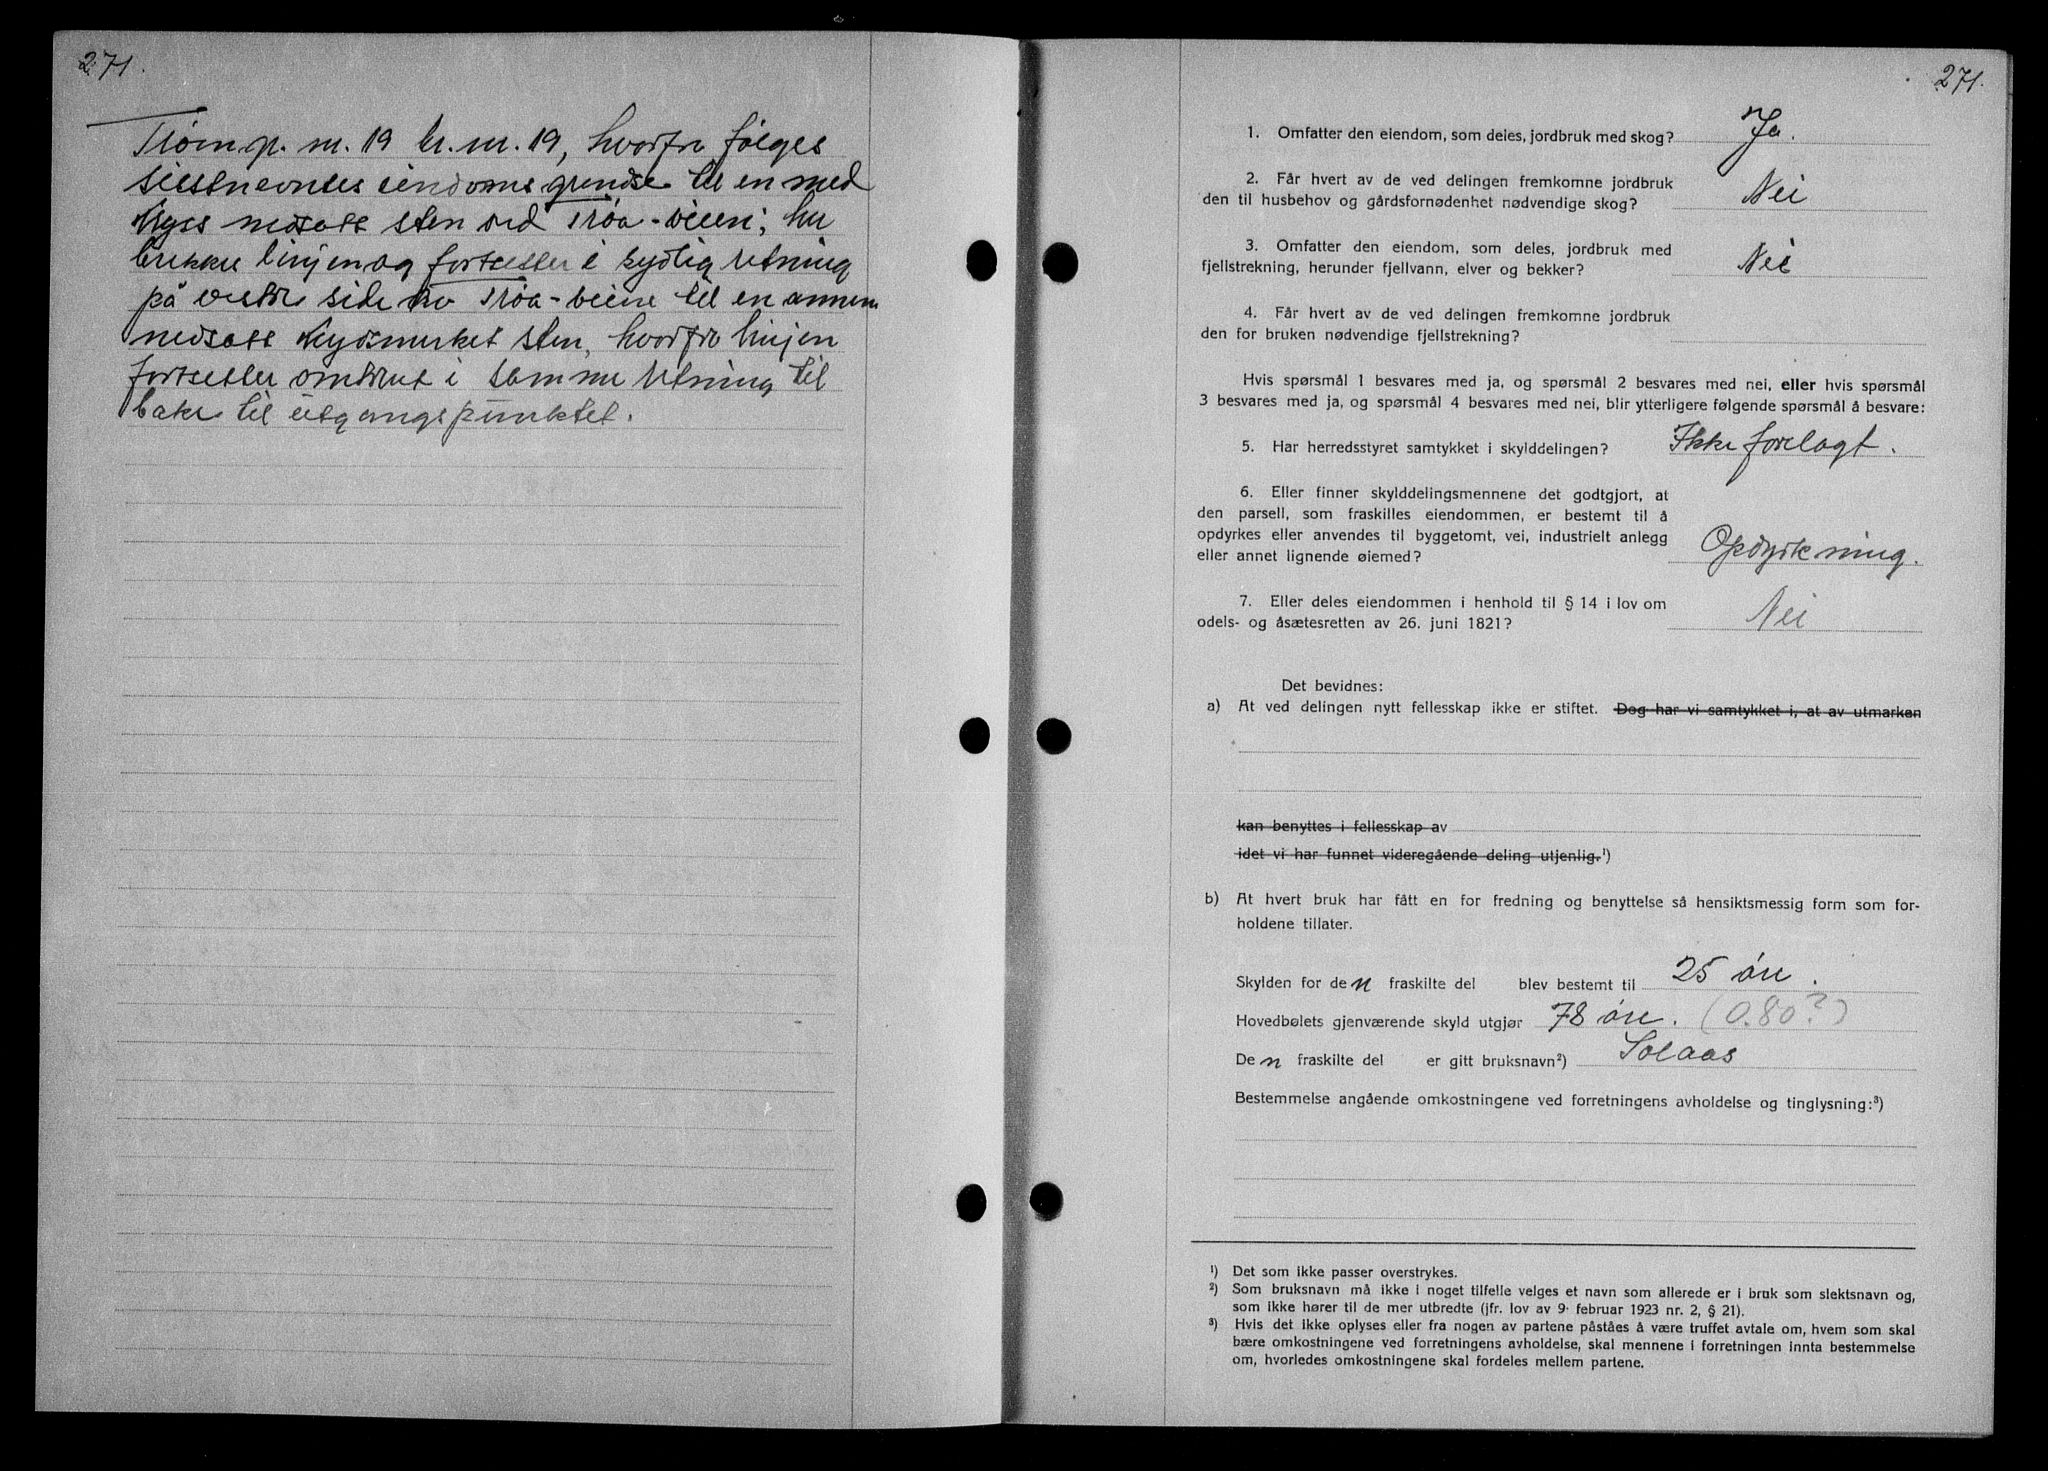 271.
Trøen g. nr. 19 br. nr. 19, hvorfra følges
sistnevntes eiendoms grense til en med
kryss nedsatt sten ved Trøa-veien; her
brekker linjen og fortsetter i sydlig retning
på vestre side av Trøa-veien til en annen
nedsatt krysmerket sten, hvorfra linjen
fortsetter omtrent i samme retning til
bake til utgangspunktet.
271.
1. Omfatter den eiendom, som deles, jordbruk med skog? Ja.
2. Får hvert av de ved delingen fremkomne jordbruk
den til husbehov og gårdsfornødenhet nødvendige skog? Nei
3. Omfatter den eiendom, som deles, jordbruk med
fjellstrekning, herunder fjellvann, elver og bekker? Nei
4. Får hvert av de ved delingen fremkomne jordbruk
den for bruken nødvendige fjellstrekning?
Hvis spørsmål 1 besvares med ja, og spørsmål 2 besvares med nei, eller hvis spørsmål
3 besvares med ja, og spørsmål 4 besvares med nei, blir ytterligere følgende spørsmål å besvare:
5. Har herredsstyret samtykket i skylddelingen? Ikke forelagt.
6. Eller finner skylddelingsmennene det godtgjort, at
den parsell, som fraskilles eiendommen, er bestemt til å
opdyrkes eller anvendes til byggetomt, vei, industrielt anlegg
eller annet lignende øiemed? Opdyrkning.
7. Eller deles eiendommen i henhold til § 14 i lov om
odels- og åsætesretten av 26. juni 1821? Nei
Det bevidnes:
a) At ved delingen nytt fellesskap ikke er stiftet. Dog har vi samtykket i, at av utmarken
kan benyttes i fellesskap av
idet vi har funnet videregående deling utjenlig.¹)
b) At hvert bruk har fått en for fredning og benyttelse så hensiktsmessig form som for-
holdene tillater.
Skylden for den fraskilte del blev bestemt til 25 øre.
Hovedbølets gjenværende skyld utgjør 78 øre. (0.80?)
Den fraskilte del er gitt bruksnavn²) Solaas
Bestemmelse angående omkostningene ved forretningens avholdelse og tinglysning:³)
¹) Det som ikke passer overstrykes.
²) Som bruksnavn må ikke i noget tilfelle velges et navn som allerede er i bruk som slektsnavn og,
som ikke hører til de mer utbredte (jfr. lov av 9. februar 1923 nr. 2, § 21).
³) Hvis det ikke oplyses eller fra nogen av partene påståes å være truffet avtale om, hvem som skal
bære omkostningene ved forretningens avholdelse, skal mennene i forretningen innta bestemmelse
om, hvorledes omkostningene skal fordeles mellem partene.